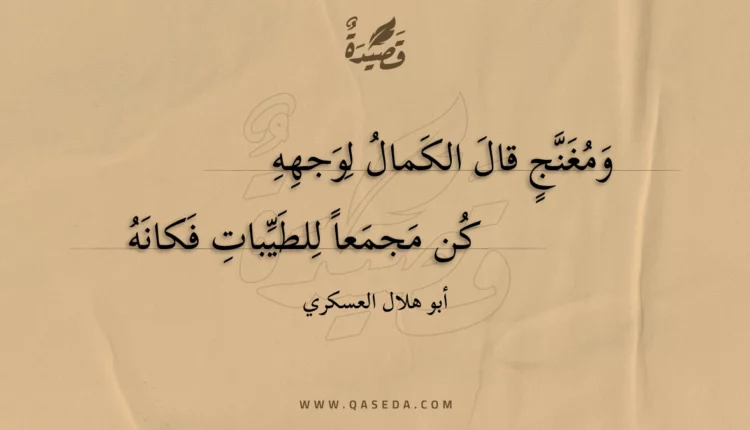 قَصِيْدَةٌ
وَمُغَنَّجٍ قالَ الكَمالُ لِوَجهِهِ
كُن مَجمَعاً لِلطَيِّباتِ فَكانَهُ
أبو هلال العسكري
WWW.QASEDA.COM